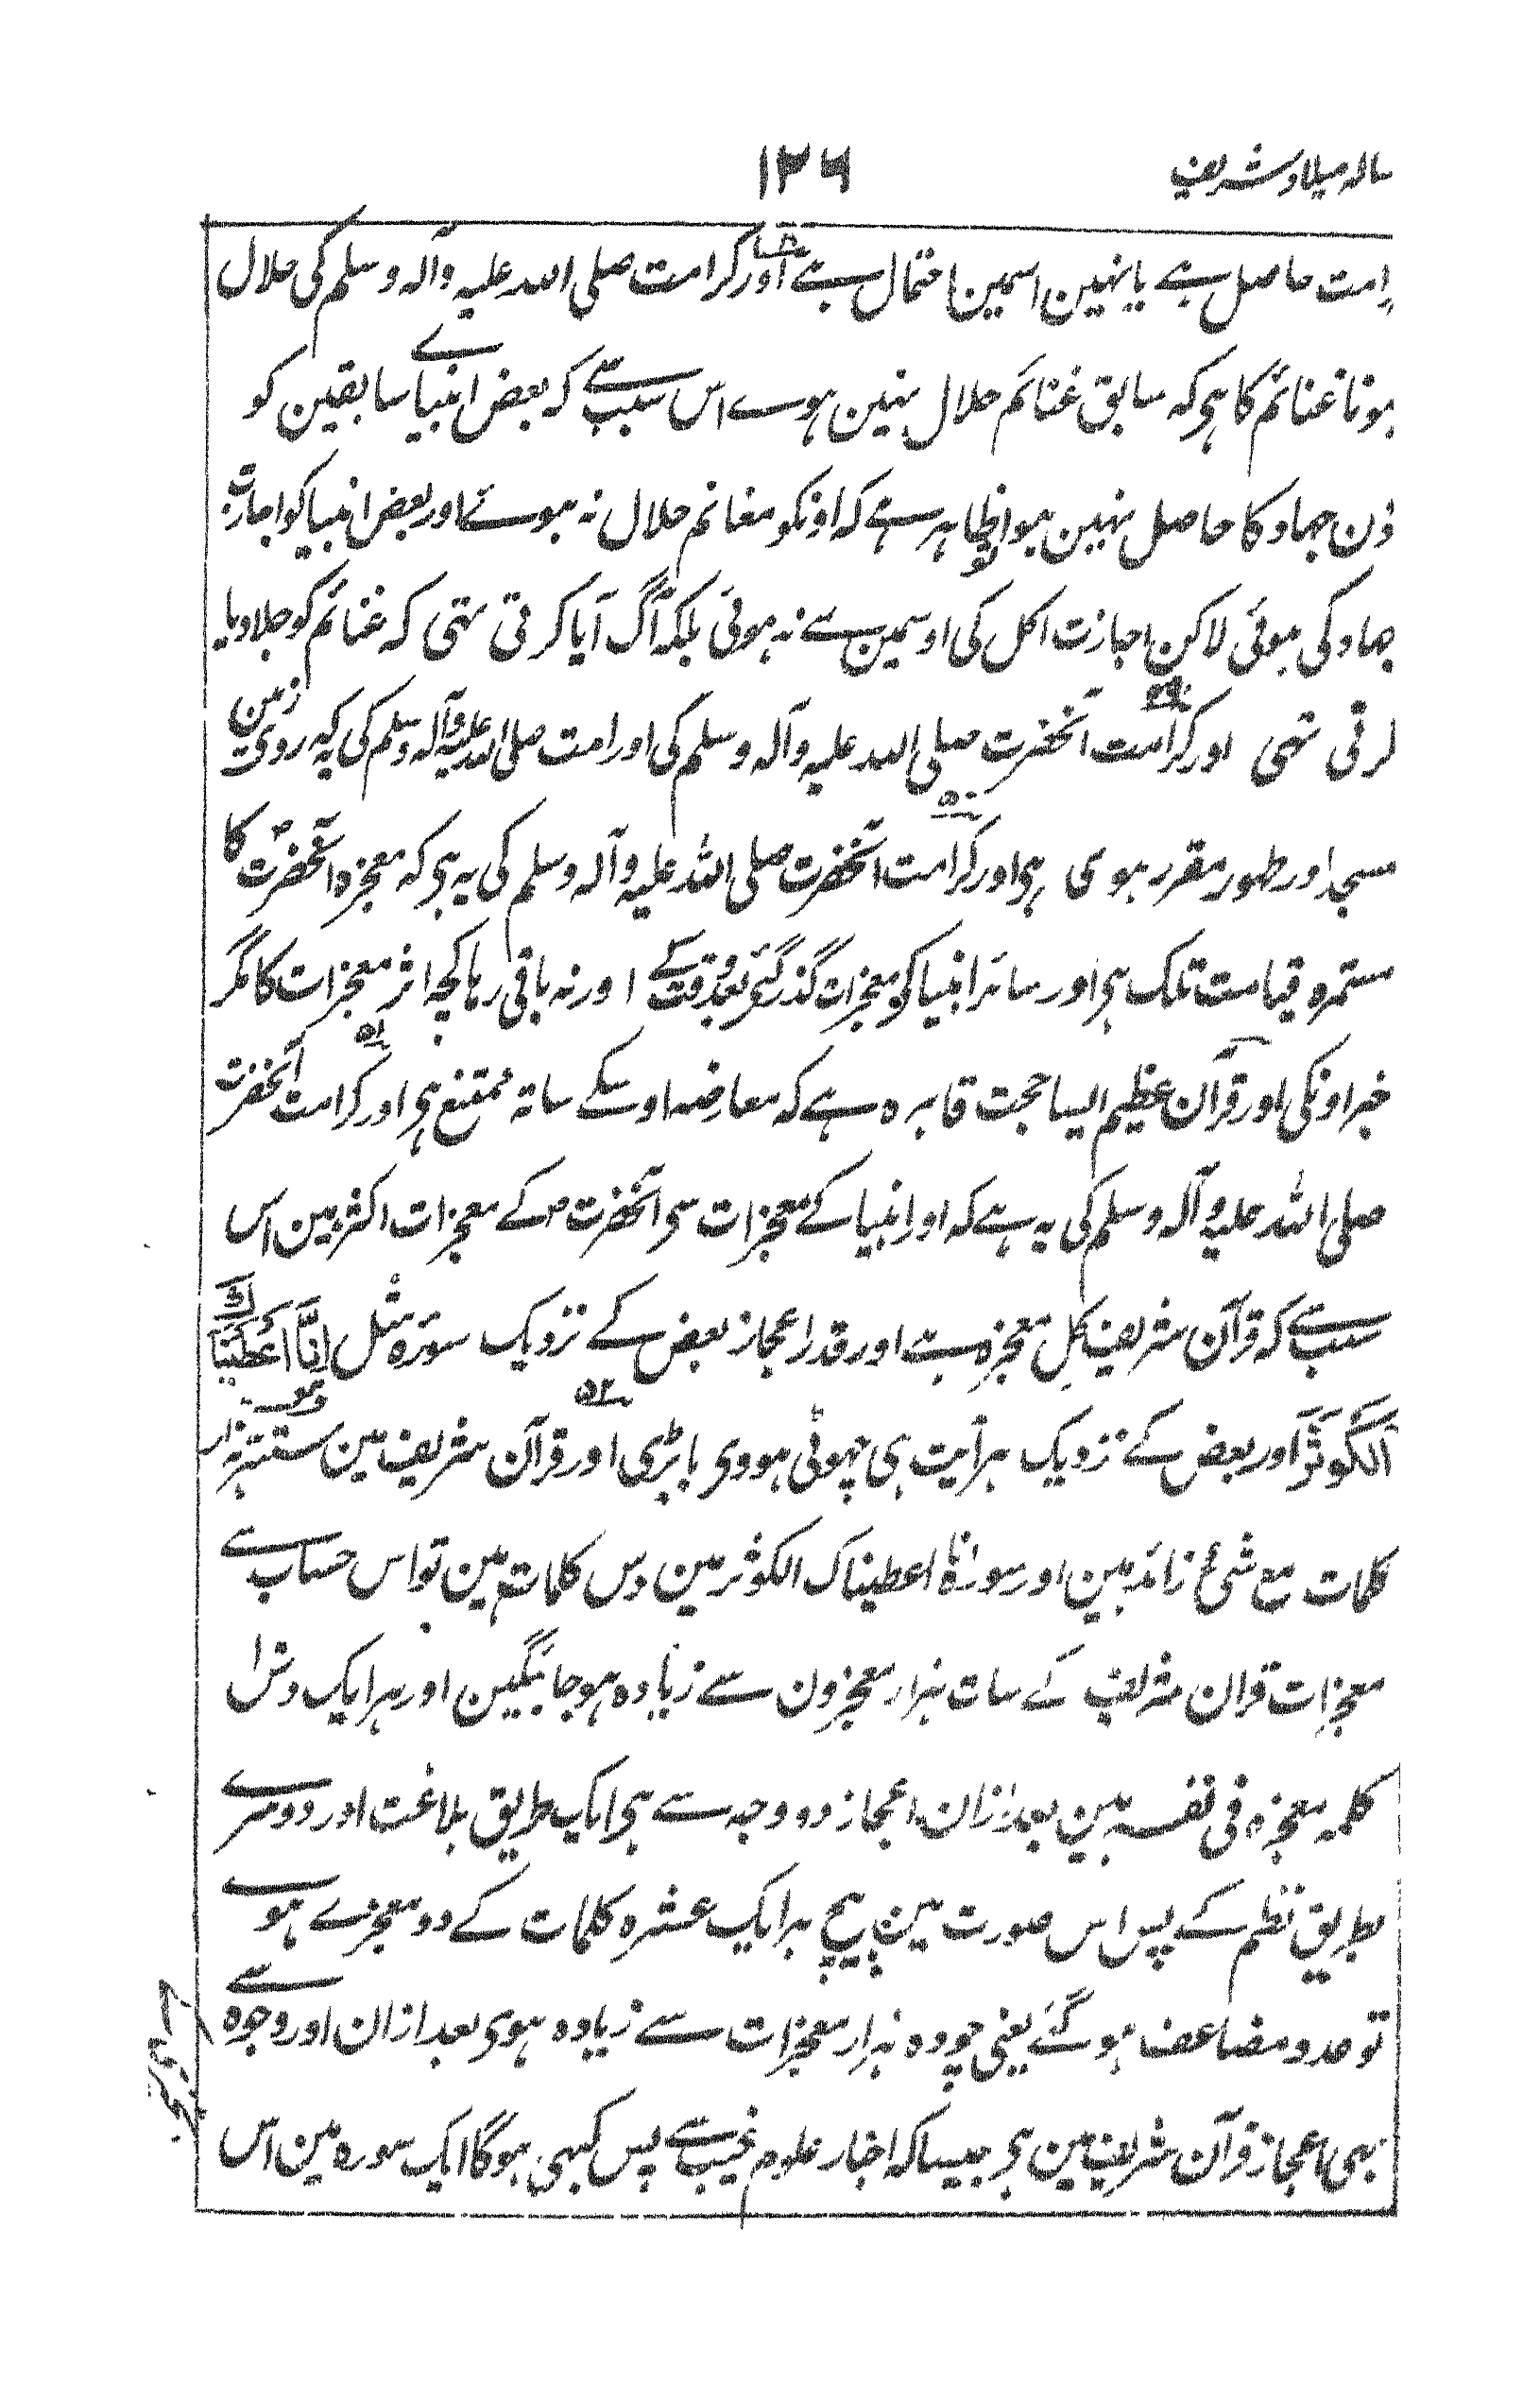 سالہ میلاد شریف
۱۲۶
امت حاصل ہے یا نہین اسمین احتمال ہے اور کرامت صلی اللہ علیہ وآلہ وسلم کی حلال
ہونا غنائم کا ہی کہ سابق غنائم حلال نہین ہوے اس سبب سے کہ بعض انبیاے سابقین کو
ذن جہاد کا حاصل نہین ہوا تو ظاہر ہے کہ اونکو مغانم حلال نہ ہوے اور بعض انبیا کو اجازت
جہاد کی ہوئی لاکن اجازت اکل کی اوسمین سے نہ ہوئی بلکہ آگ آیا کرتی تہی کہ غنائم کو جلا دیا
کرتی تہی اور کرامت ۴۹ آنحضرت صلی اللہ علیہ وآلہ وسلم کی اور امت صلی اللہ علیہ وآلہ وسلم کی یہ کہ روی زمین
مسجد اور طہور مقرر ہوی ہی اور کرامت ۵۰ آنحضرت صلی اللہ علیہ وآلہ وسلم کی یہ ہی کہ معجزہ آنحضرتؐ کا
مستمرہ قیامت تلک ہی اور سائر انبیا کی معجزات گذر گئی بعد وقت کے اور نہ باقی رہا کچہ اثر معجزات کا مگر
خبر اونکی اور قرآن عظیم ایسا حجت قاہرہ ہے کہ معارضہ اوسکے ساتہ ممتنع ہی اور کرامت ۵۱ آنحضرت
صلی اللہ علیہ وآلہ وسلم کی یہ ہے کہ اور انبیا کے معجزات سی آنحضرت ص کے معجزات اکثر ہین اس
سبب سے کہ قرآن شریف کل معجزہ ہے اور قدر اعجاز بعض کے نزدیک سورہ مثل اِنَّا اَعْطَيْنَاكَ
الْكَوْثَرَ اور بعض کے نزدیک ہر آیت ہی چہوٹی ہووی یا بڑی اور ۵۲ قرآن شریف مین ستتر ہزار
کلمات مع شیٔ زائد ہین اور سورۂ انا اعطیناک الکوثر مین دس کلمات ہین تو اس حساب سے
معجزات قران شریف کے سات ہزار معجزون سے زیادہ ہو جائینگین اور ہر ایک دش
کلمہ معجزہ فی نفسہ ہین بعد ازان اعجاز دو وجہ سے ہی ایک طریق بلاغت اور دوسرے
بطریق نظم کے پس اس صورت مین بیچ ہر ایک عشرہ کلمات کے دو معجزے ہوے
تو عدد مضاعف ہو گئے یعنی چودہ ہزار معجزات سے زیادہ ہوی بعد ازان اور وجوہ سے
بہی اعجاز قرآن شریف مین ہی جیسا کہ اخبار علوم غیب سے پس کبہی ہوگا ایک سورہ مین اس